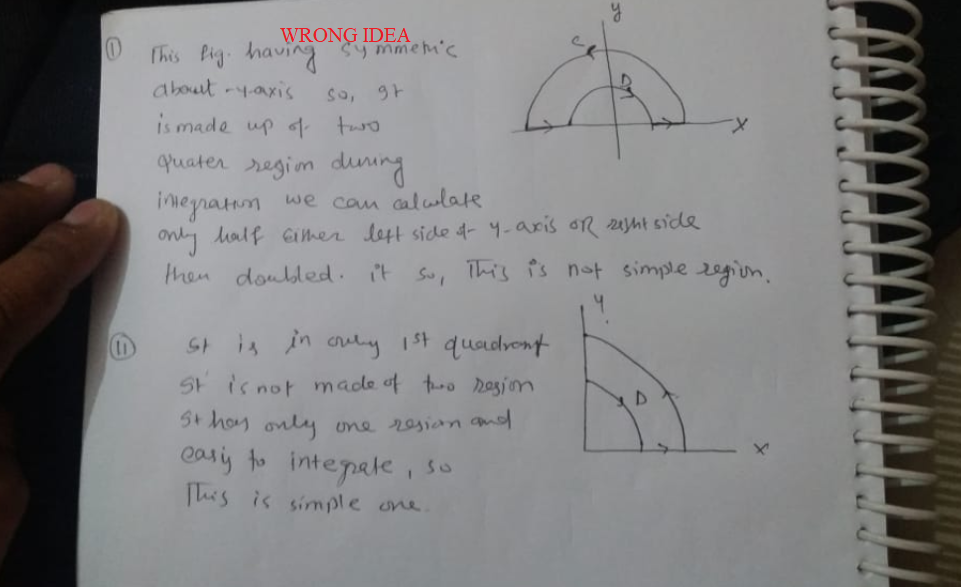 WRONG IDEA
y
① This fig. having symmetric
C
about -y-axis so, It
D
is made up of two
x
quater region during
integration we can calculate
only half either left side of y-axis OR right side
then doubled. it so, This is not simple region.
y
⑪ It is in only 1st quadrant
It is not made of two region
D
It has only one region and
x
easy to integrate, so
This is simple one.